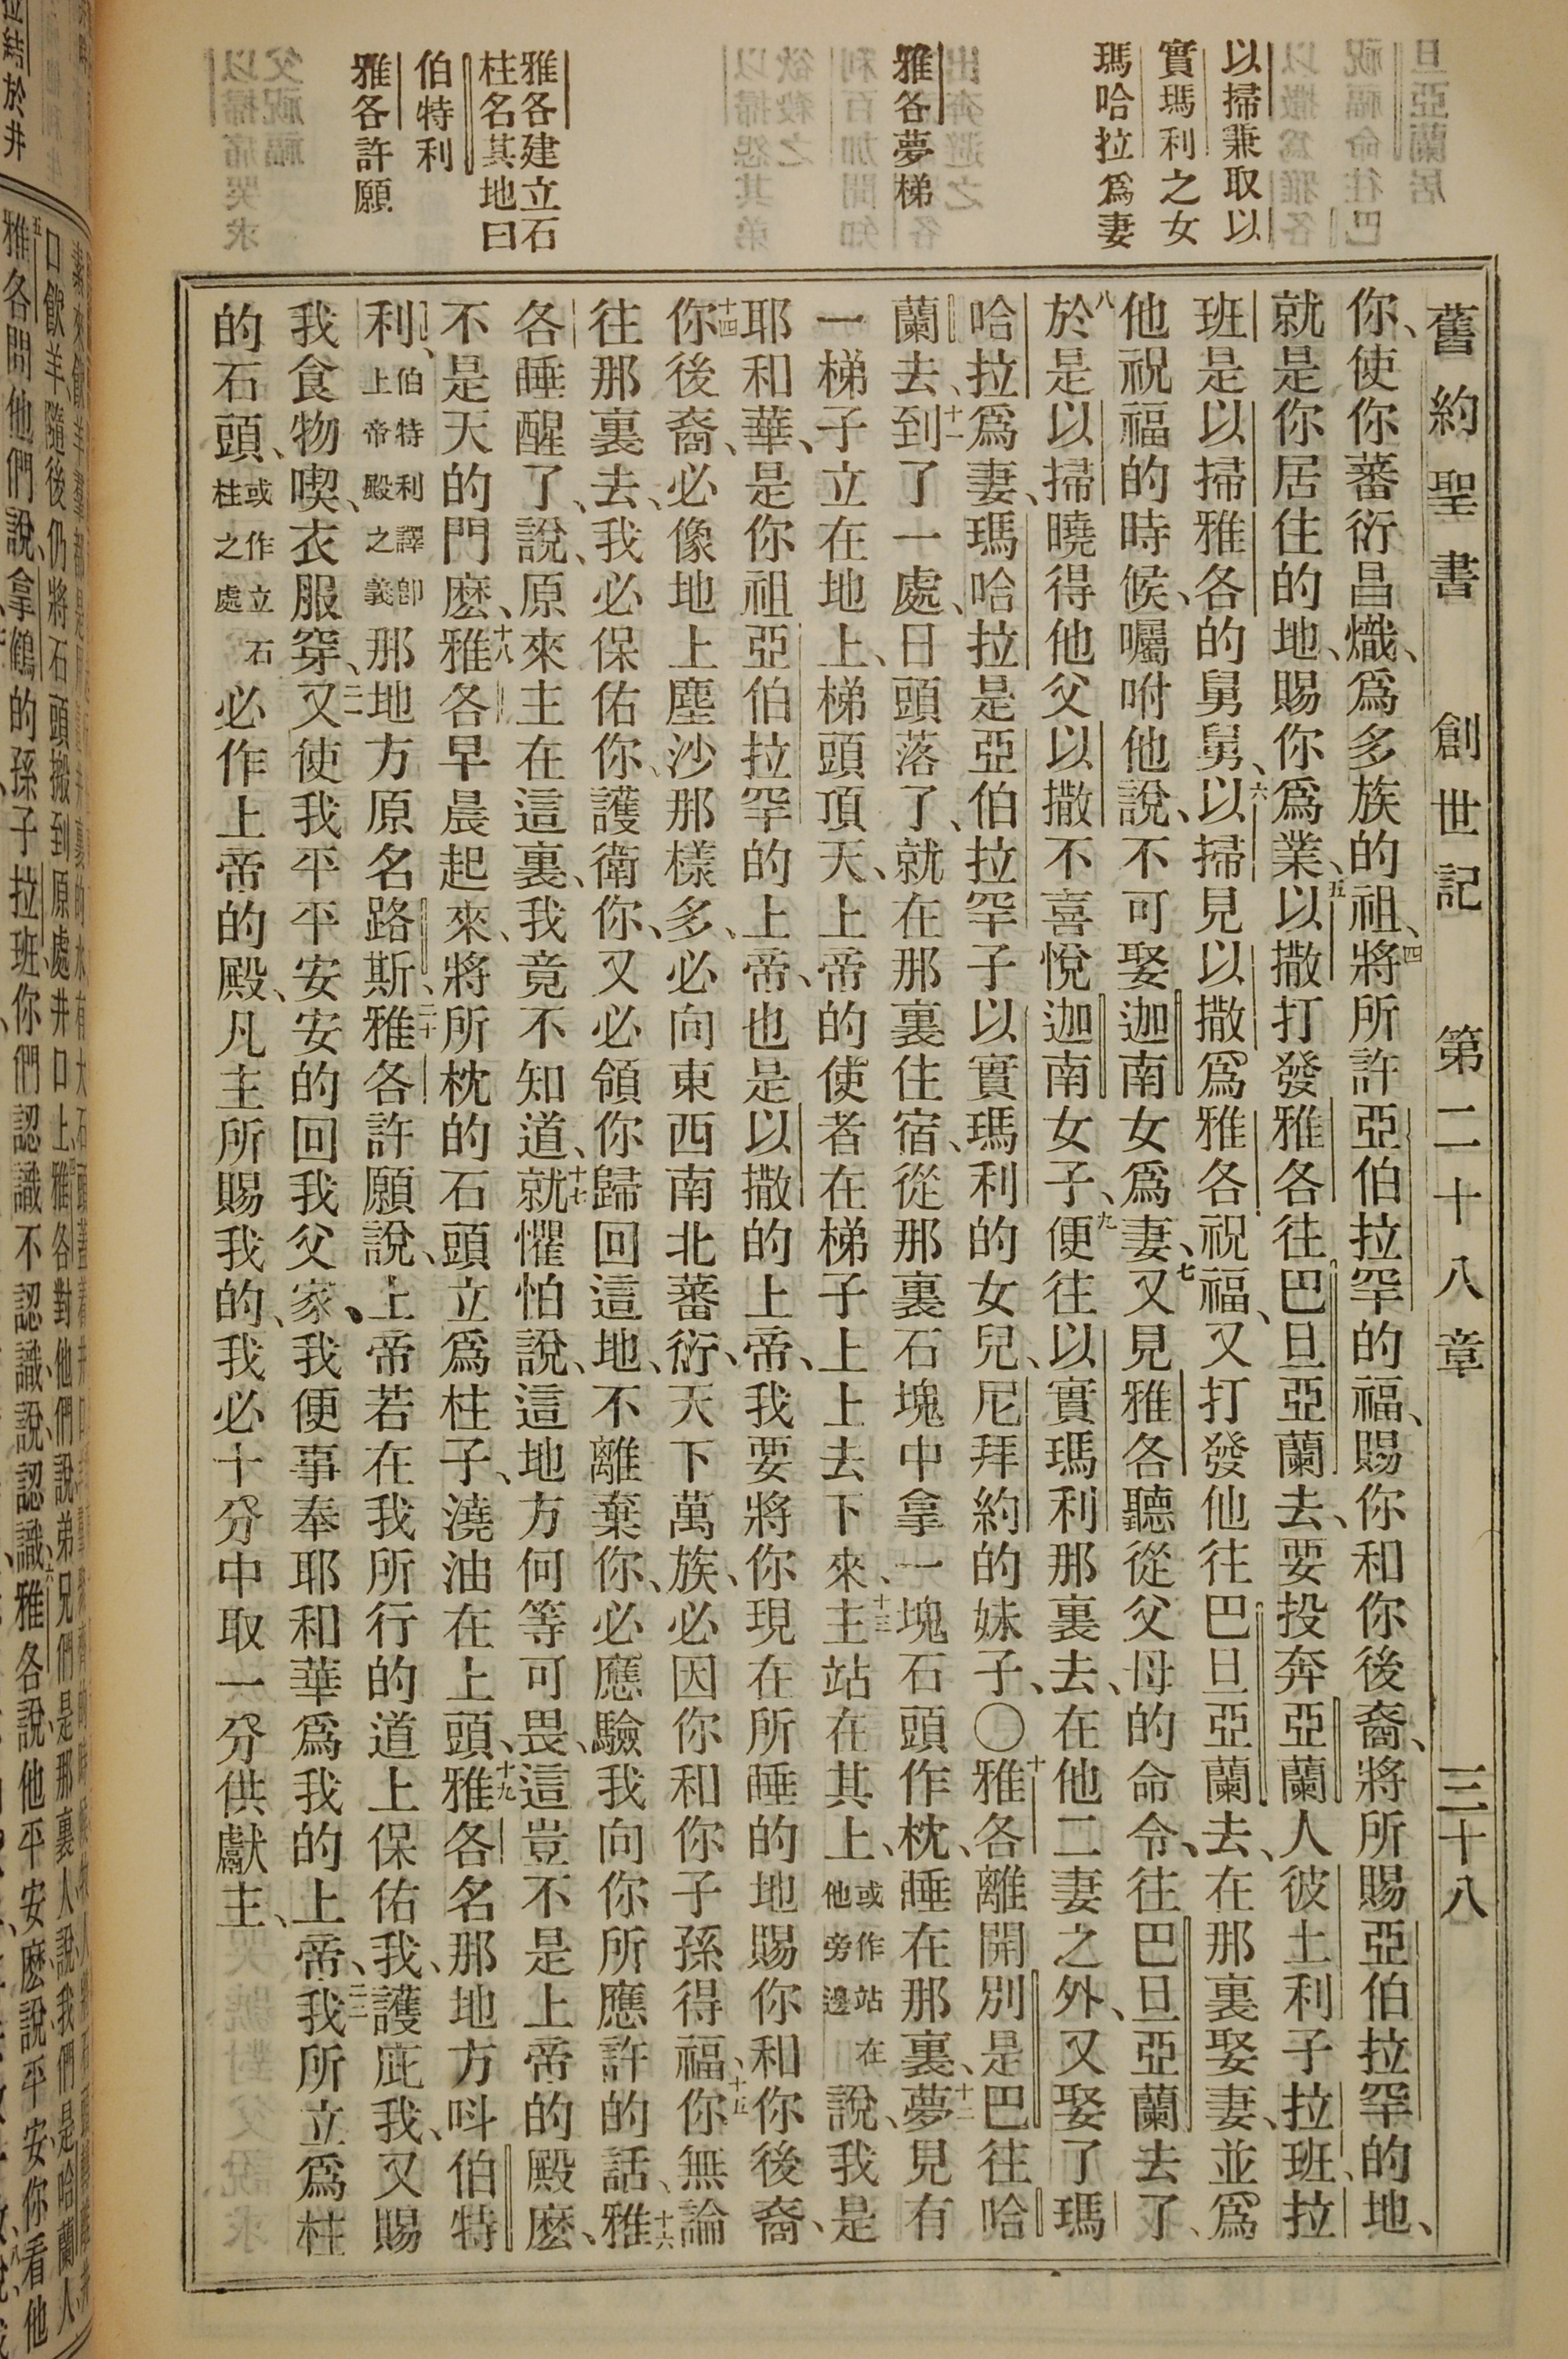 舊約聖書 創世記 第二十八章 三十八
以掃兼取以
實瑪利之女
瑪哈拉爲妻
雅各夢梯
雅各建立石
柱名其地曰
伯特利
雅各許願
你、使你蕃衍昌熾、爲多族的祖、四將所許亞伯拉罕的福、賜你和你後裔、將所賜亞伯拉罕的地、
就是你居住的地、賜你爲業、五以撒打發雅各往巴旦亞蘭去、要投奔亞蘭人彼土利子拉班、拉
班是以掃雅各的舅舅、六以掃見以撒爲雅各祝福、又打發他往巴旦亞蘭去、在那裏娶妻、並爲
他祝福的時候、囑咐他說、不可娶迦南女爲妻、七又見雅各聽從父母的命令、往巴旦亞蘭去了、
八於是以掃曉得他父以撒不喜悅迦南女子、九便往以實瑪利那裏去、在他二妻之外、又娶了瑪
哈拉爲妻、瑪哈拉是亞伯拉罕子以實瑪利的女兒、尼拜約的妹子、〇十雅各離開別是巴往哈
蘭去、十一到了一處、日頭落了、就在那裏住宿、從那裏石塊中拿一塊石頭作枕、睡在那裏、十二夢見有
一梯子立在地上、梯頭頂天、上帝的使者在梯子上上去下來、十三主站在其上、或作站在他旁邊說、我是
耶和華、是你祖亞伯拉罕的上帝、也是以撒的上帝、我要將你現在所睡的地賜你和你後裔、
十四你後裔、必像地上塵沙那樣多、必向東西南北蕃衍、天下萬族、必因你和你子孫得福、十五你無論
往那裏去、我必保佑你、護衛你、又必領你歸回這地、不離棄你、必應驗我向你所應許的話、十六雅
各睡醒了、說、原來主在這裏、我竟不知道、十七就懼怕說、這地方何等可畏、這豈不是上帝的殿麽、
不是天的門麽、十八雅各早晨起來、將所枕的石頭立爲柱子、澆油在上頭、十九雅各名那地方呌伯特
利、伯特利譯卽上帝殿之義那地方原名路斯、二十雅各許願說、上帝若在我所行的道上保佑我、護庇我、又賜
我食物喫、衣服穿、二一又使我平平安安的回我父家、我便事奉耶和華爲我的上帝、二二我所立爲柱
的石頭、或作立石柱之處必作上帝的殿、凡主所賜我的、我必十分中取一分供獻主、
口飲羊、隨後仍將石頭搬到原處井口上、雅各對他們說、弟兄們是那裏人、說、我們是哈蘭人、
五雅各問他們說、拿鶴的孫子拉班、你們認識不認識、說、認識、六雅各說、他平安麽、說、平安、你看他